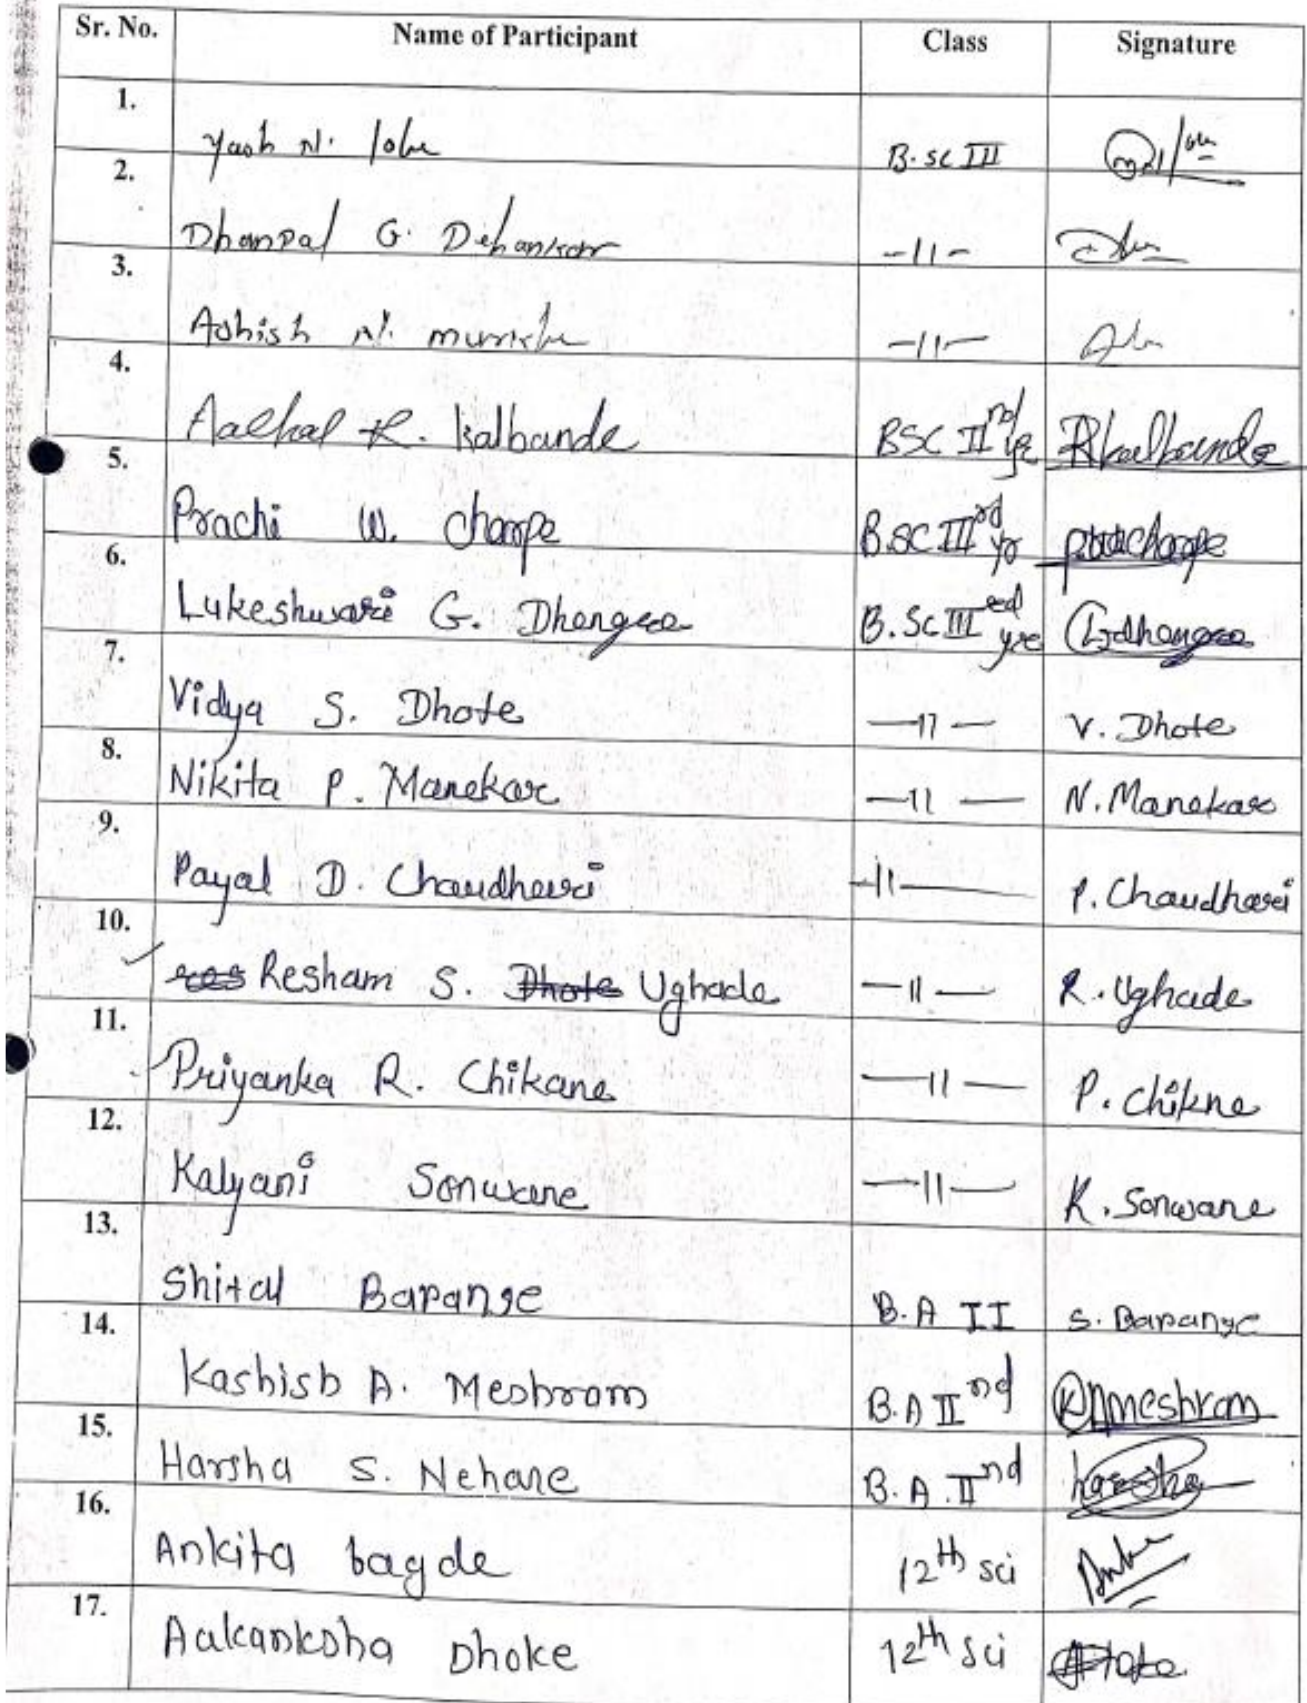 Sr. No. Name of Participant Class Signature
1. Yash N. B.sc III
2. Dhanpal G. Dehankar -11-
3. Ashish N. -11-
4. R. Kalbande BSC II nd yr Rkalbande
5. Prachi W. Charpe B.SC III rd yr
6. Lukeshwari G. Dhengre B.Sc III rd yre Gdhengre
7. Vidya S. Dhote -11- V. Dhote
8. Nikita P. Manekar -11- N. Manekar
9. Payal D. Chaudhari -11- P. Chaudhari
10. Resham S. Dhote Ughade -11- R. Ughade
11. Priyanka R. Chikane -11- P. Chikne
12. Kalyani Sonwane -11- K. Sonwane
13. Shital Barange B.A II S. Barange
14. Kashish A. Meshram B.A II nd KAmeshram
15. Harsha S. Nehare B.A. II nd harsha
16. Ankita bagde 12th sci
17. Aakanksha Dhoke 12th sci